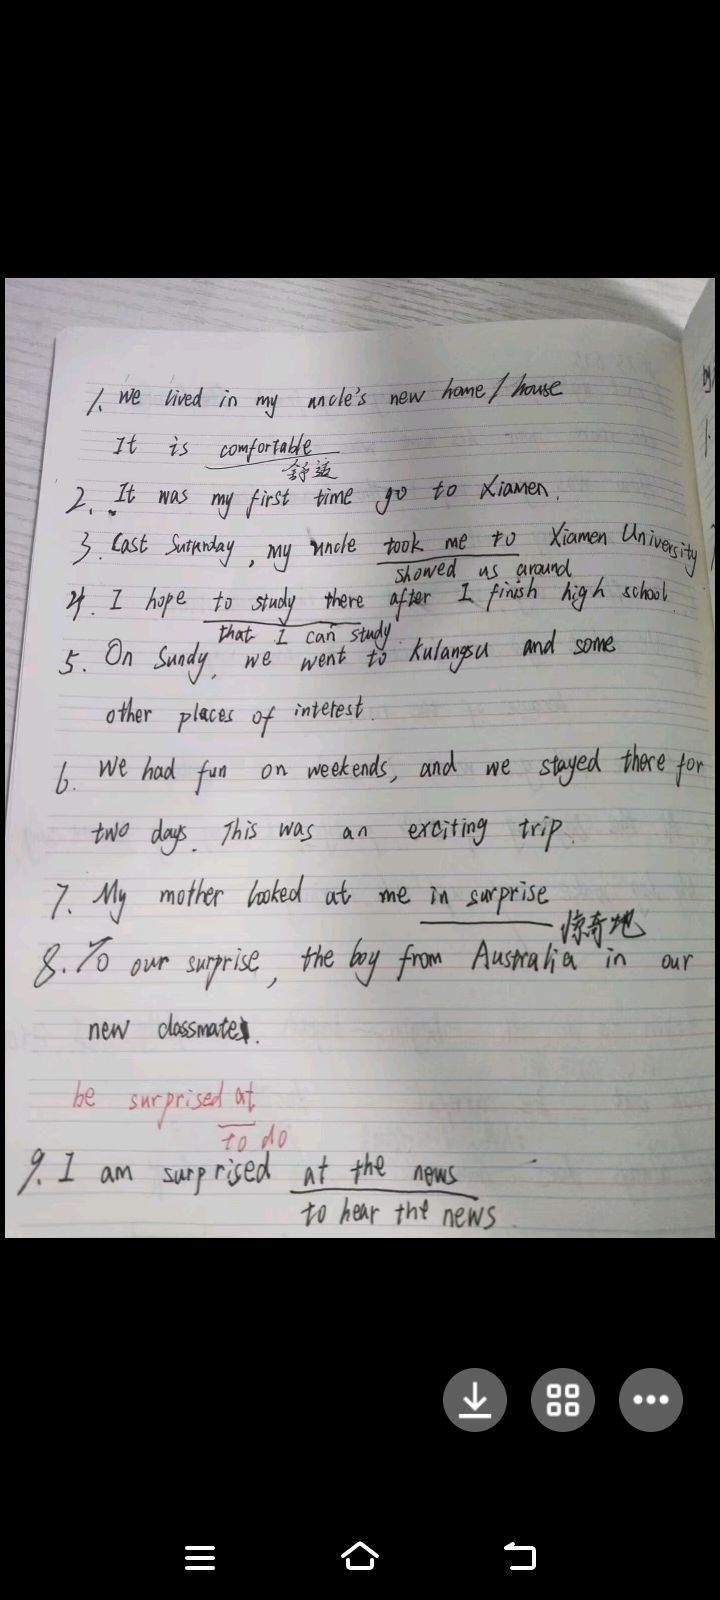 1. We lived in my uncle's new home / house
It is comfortable
舒适
2. It was my first time go to Xiamen.
3. Last Suturday, my uncle took me to Xiamen University
showed us around
4. I hope to study there after I finish high school.
that I can study
5. On Sundy, we went to Kulangsu and some
other places of interest.
6. We had fun on weekends, and we stayed there for
two days. This was an exciting trip.
7. My mother looked at me in surprise
惊奇地
8. To our surprise, the boy from Australia in our
new classmate.
be surprised at
to do
9. I am surprised at the news
to hear the news.